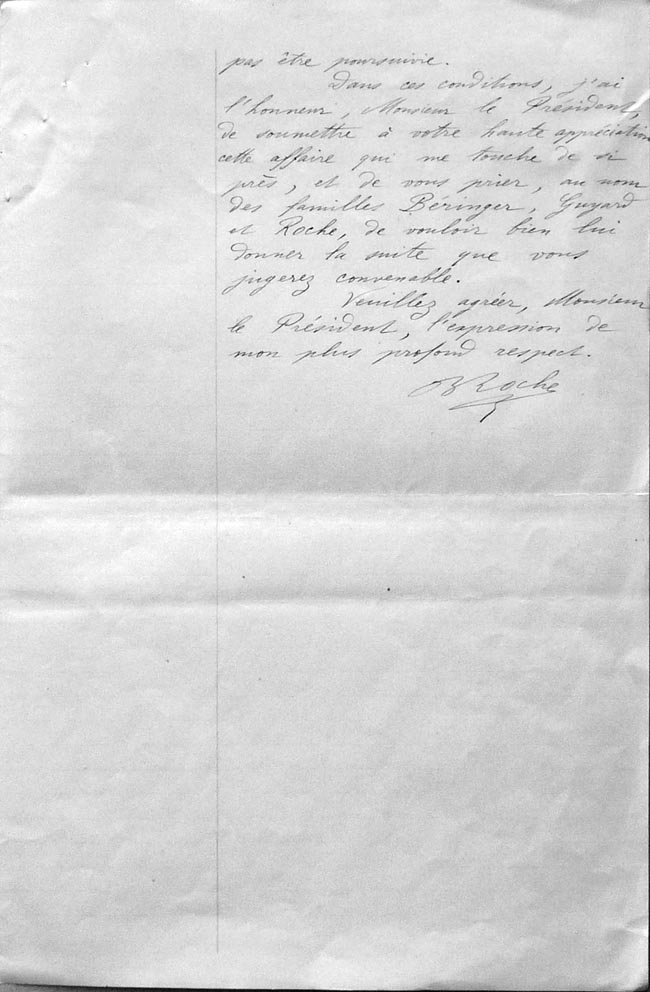 pas être poursuivie.
Dans ces conditions, j'ai
l'honneur, Monsieur le Président,
de soumettre à votre haute appréciation
cette affaire qui me touche de si
près, et de vous prier, au nom
des familles Béringer, Guyard
et Roche, de vouloir bien lui
donner la suite que vous
jugerez convenable.
Veuillez agréer, Monsieur
le Président, l'expression de
mon plus profond respect.
Roche